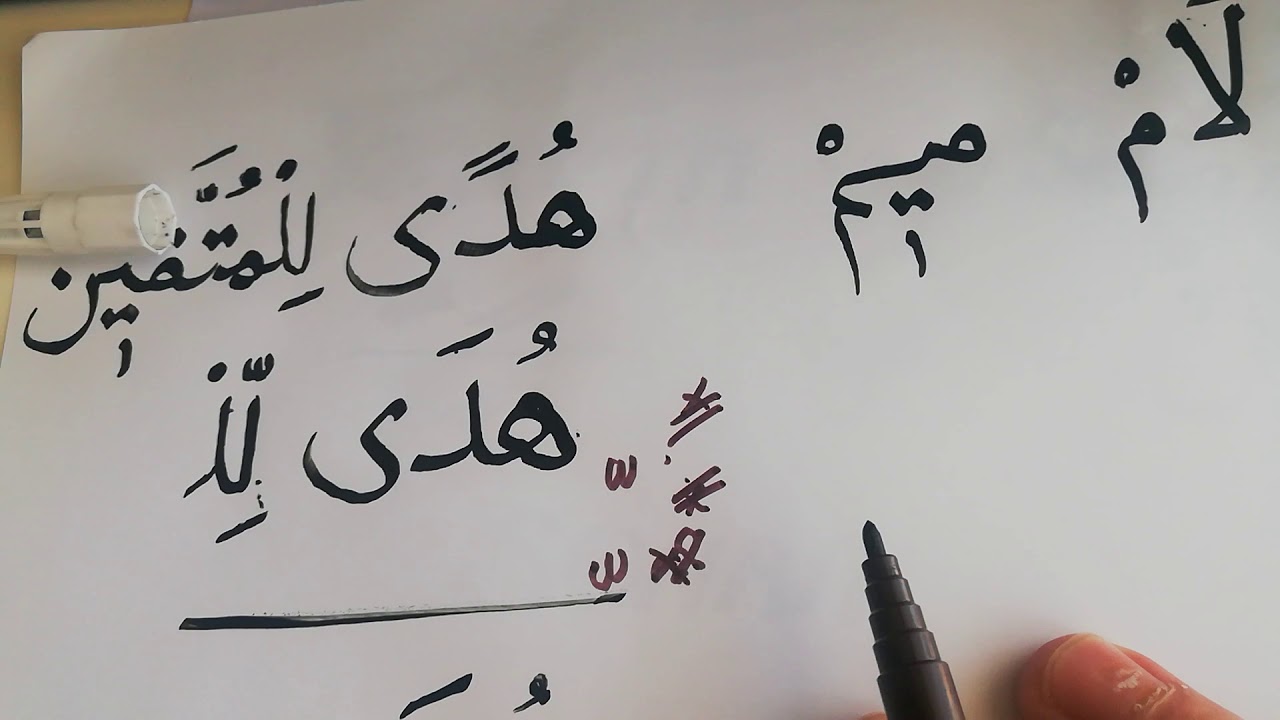 لَامْ
مِيمْ
هُدًى لِلْمُتَّقِينَ
هُدَى لِّلْ